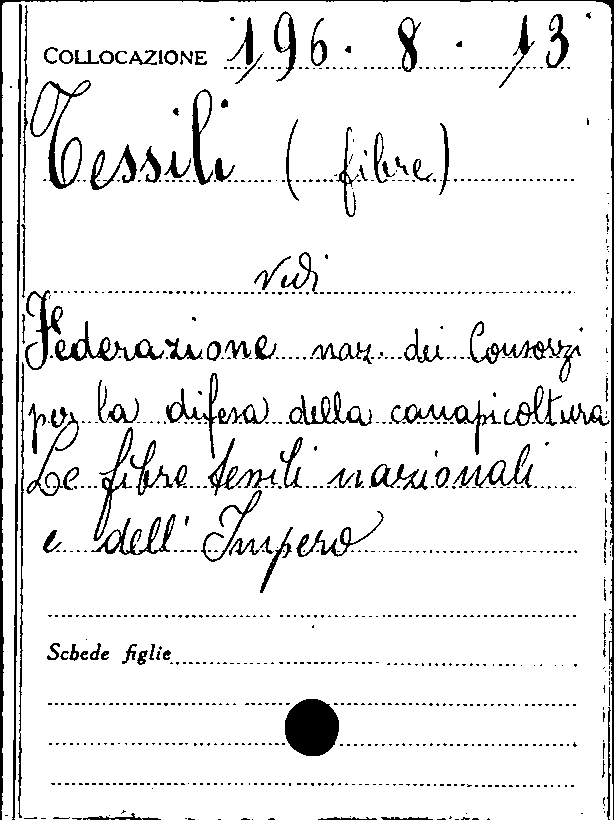 COLLOCAZIONE 196. 8. 13
Tessili (fibre)
vedi
Federazione naz. dei Consorzi
per la difesa della canapicoltura
Le fibre tessili nazionali
e dell' Impero
Schede figlie